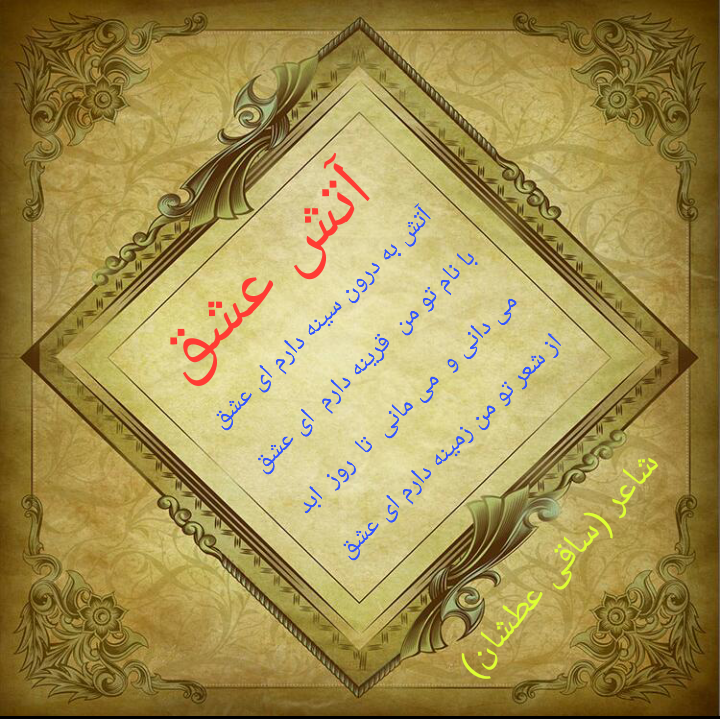 آتش عشق
آتش به درون سینه دارم ای عشق
با نام تو من قرینه دارم ای عشق
می دانی و می مانی تا روز ابد
از شعر تو من زمینه دارم ای عشق
شاعر (ساقی عطشان)